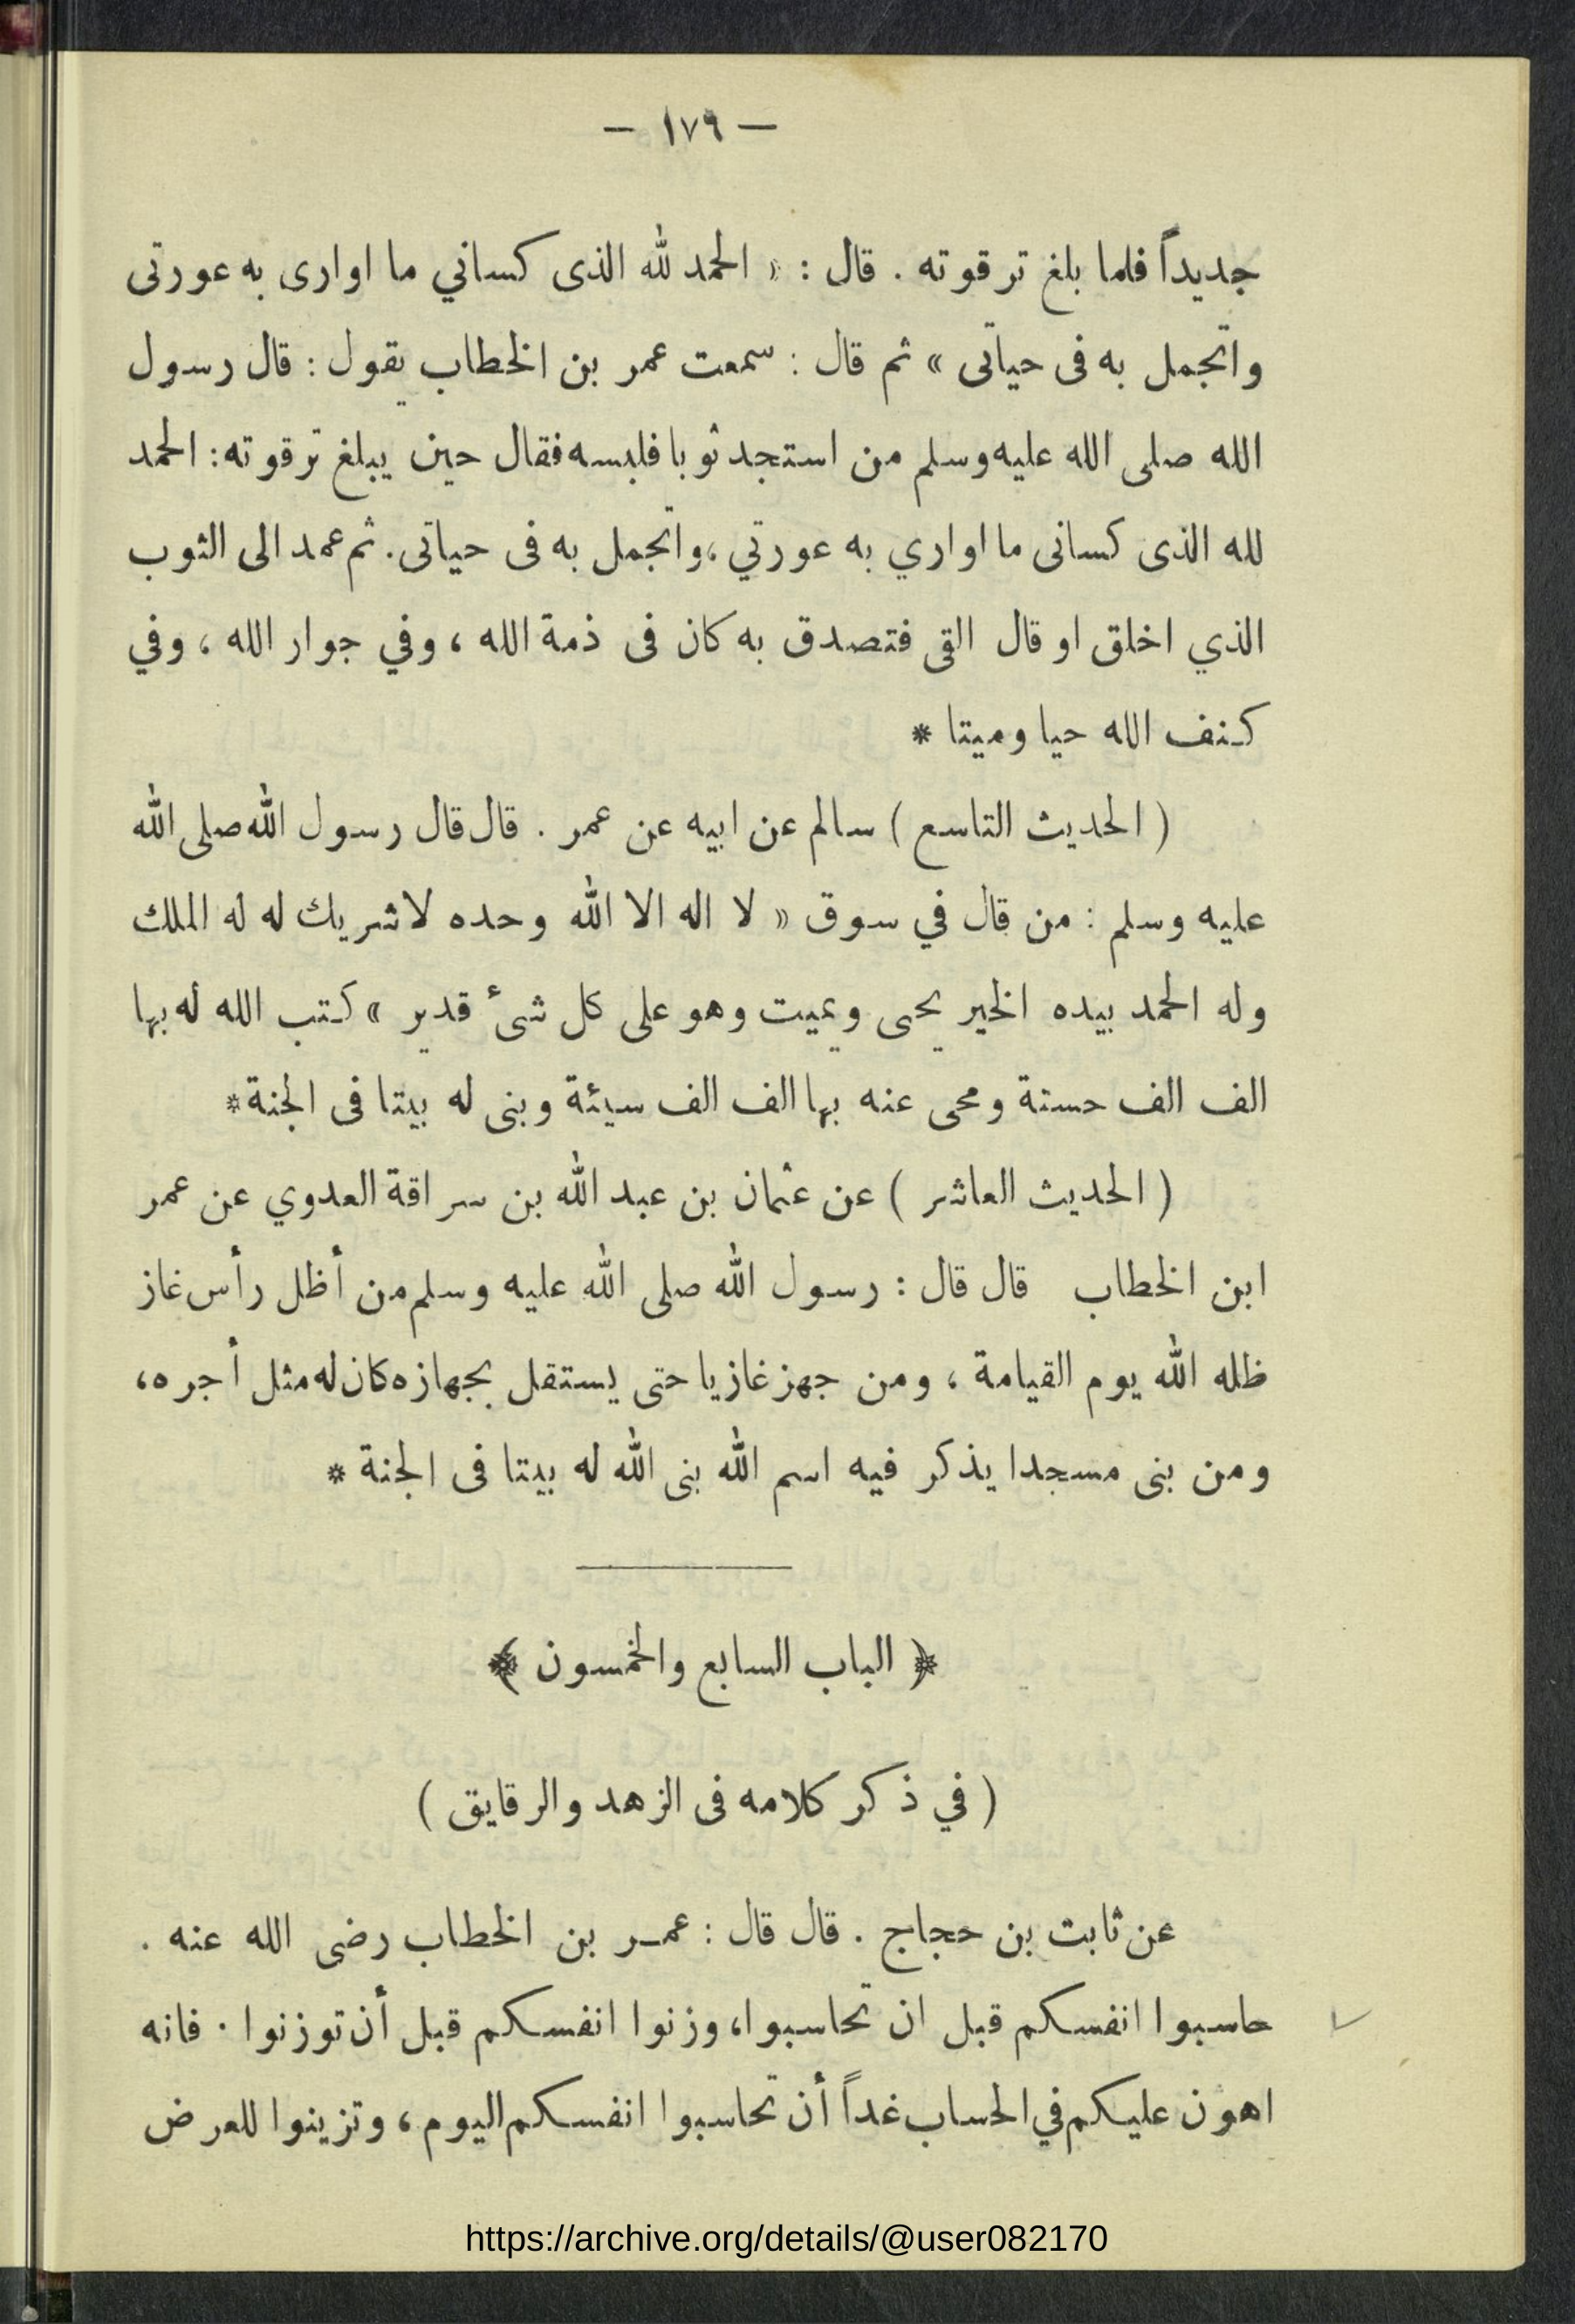 — ١٧٩ —
جديداً فلما بلغ ترقوته . قال : « الحمد لله الذى كساني ما اوارى به عورتى
واتجمل به فى حياتى » ثم قال : سمعت عمر بن الخطاب يقول : قال رسول
الله صلى الله عليه وسلم من استجد ثوبا فلبسه فقال حين يبلغ ترقوته : الحمد
لله الذى كسانى ما اواري به عورتي ، واتجمل به فى حياتى . ثم عمد الى الثوب
الذي اخلق او قال القى فتصدق به كان فى ذمة الله ، وفي جوار الله ، وفي
كنف الله حيا وميتا *
( الحديث التاسع ) سالم عن ابيه عن عمر . قال قال رسول الله صلى الله
عليه وسلم : من قال في سوق « لا اله الا الله وحده لاشريك له له الملك
وله الحمد بيده الخير يحى ويميت وهو على كل شىء قدير » كتب الله له بها
الف الف حسنة ومحى عنه بها الف الف سيئة وبنى له بيتا فى الجنة *
( الحديث العاشر ) عن عثمان بن عبد الله بن سراقة العدوي عن عمر
ابن الخطاب قال قال : رسول الله صلى الله عليه وسلم من أظل رأس غاز
ظله الله يوم القيامة ، ومن جهز غازيا حتى يستقل بجهازه كان له مثل أجره ،
ومن بنى مسجدا يذكر فيه اسم الله بنى الله له بيتا فى الجنة *
﴿ الباب السابع والخمسون ﴾
( في ذكر كلامه فى الزهد والرقايق )
عن ثابت بن حجاج . قال قال : عمر بن الخطاب رضى الله عنه .
حاسبوا انفسكم قبل ان تحاسبوا ، وزنوا انفسكم قبل أن توزنوا . فانه
اهون عليكم في الحساب غداً أن تحاسبوا انفسكم اليوم ، وتزينوا للعرض
https://archive.org/details/@user082170